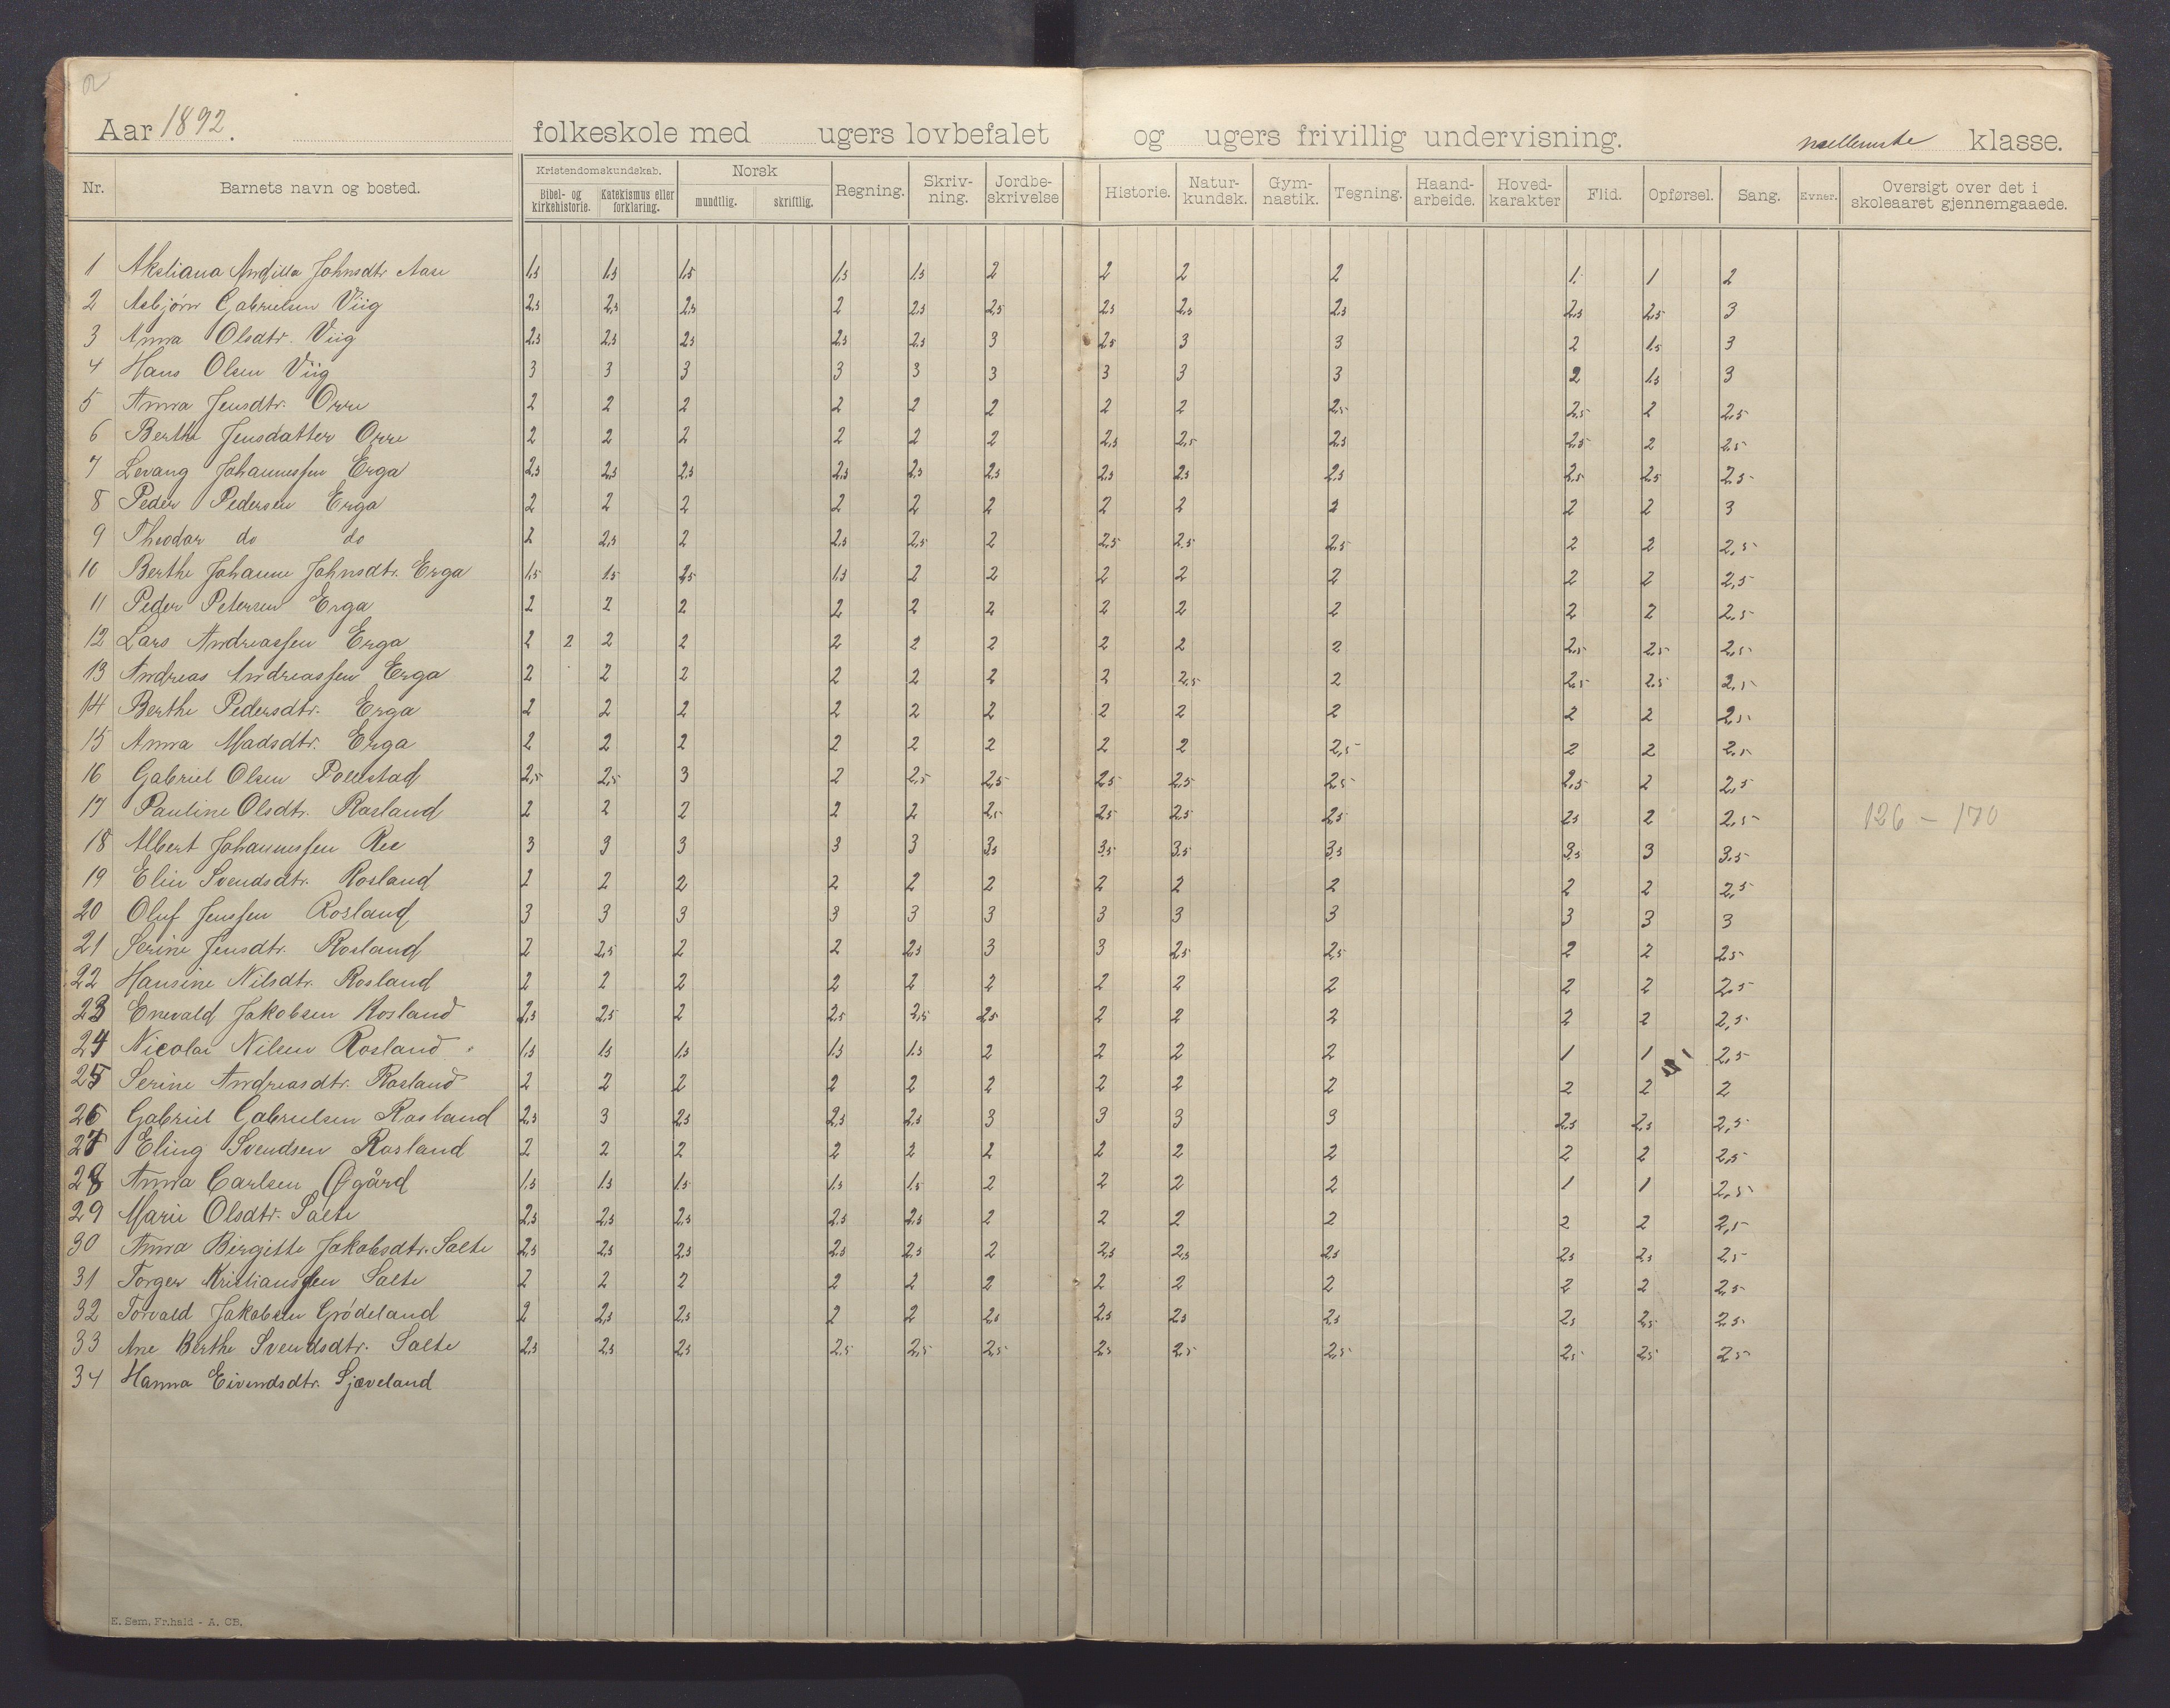 2
Aar 1892. folkeskole med ugers lovbefalet og ugers frivillig undervisning. mellemste klasse.
Nr. Barnets navn og bosted. Kristendomskundskab. Bibel- og kirkehistorie. Katekismus eller forklaring. Norsk mundtlig. skriftlig. Regning. Skriv-ning. Jordbe-skrivelse Historie. Natur-kundsk. Gym-nastik. Tegning. Haand-arbeide. Hoved-karakter Flid. Opførsel. Sang. Evner. Oversigt over det i skoleaaret gjennemgaaede.
1 Akeliana Johnsdtr Aase 1,5 1,5 1,5 1,5 1,5 2 2 2 2 1 1 2
2 Asbjörn Gabrielsen Viig 2,5 2,5 2,5 2 2,5 2,5 2,5 2,5 2,5 2,5 2,5 3
3 Anna Olsdtr. Viig 2,5 2,5 2,5 2,5 2,5 3 2,5 3 3 2 1,5 3
4 Hans Olsen Viig 3 3 3 3 3 3 3 3 3 2 1,5 3
5 Anna Jensdtr. Orre 2 2 2 2 2 2 2 2 2,5 2,5 2 2,5
6 Berthe Jensdatter Orre 2 2 2 2 2 2 2,5 2,5 2,5 2,5 2 2,5
7 Levang Johannessen Erga 2,5 2,5 2,5 2,5 2,5 2,5 2,5 2,5 2,5 2,5 2,5 2,5
8 Peder Pedersen Erga 2 2 2 2 2 2 2 2 2 2 2 3
9 Theodor do do 2 2,5 2 2,5 2,5 2 2,5 2,5 2,5 2 2 2,5
10 Berthe Johanne Johnsdtr. Erga 1,5 1,5 2,5 1,5 2 2 2 2 2 2 2 2,5
11 Peder Petersen Erga 2 2 2 2 2 2 2 2 2 2 2 2,5
12 Lars Andreassen Erga 2 2 2 2 2 2 2 2 2 2 2,5 2,5 2,5
13 Andreas Andreassen Erga 2 2 2 2 2 2 2 2,5 2 2,5 2,5 2,5
14 Berthe Pedersdtr. Erga 2 2 2 2 2 2 2 2 2 2 2 2,5
15 Anna Madsdtr. Erga 2 2 2 2 2 2 2 2 2,5 2 2 2,5
16 Gabriel Olsen Pollestad 2,5 2,5 3 2 2,5 2,5 2,5 2,5 2,5 2,5 2 2,5
17 Pauline Olsdtr. Rosland 2 2 2 2 2 2,5 2,5 2,5 2,5 2,5 2 2,5 126 - 170
18 Albert Johannessen Ree 3 3 3 3 3 3,5 3,5 3,5 3,5 3,5 3 3,5
19 Elin Svendsdtr. Rosland 2 2 2 2 2 2 2 2 2 2 2 2,5
20 Oluf Jenssen Rosland 3 3 3 3 3 3 3 3 3 3 3 3
21 Serine Jensdtr. Rosland 2 2,5 2 2 2,5 3 3 2,5 2,5 2 2 2,5
22 Hansine Nilsdtr. Rosland 2 2 2 2 2 2 2 2 2 2 2 2,5
23 Enevald Jakobsen Rosland 2,5 2,5 2 2,5 2,5 2,5 2 2 2 2 2 2,5
24 Nicolai Nilsen Rosland 1,5 1,5 1,5 1,5 1,5 2 2 2 2 1 1 2,5
25 Serine Andreasdtr. Rosland 2 2 2 2 2 2 2 2 2 2 2 2
26 Gabriel Gabrielsen Rosland 2,5 3 2,5 2,5 2,5 3 3 3 3 2,5 2,5 2,5
27 Eling Svendsen Rosland 2 2 2 2 2 2 2 2 2 2 2 2,5
28 Anna Carlsen Øgård 1,5 1,5 1,5 1,5 1,5 2 2 2 2 1 1 2,5
29 Marie Olsdtr. Salte 2,5 2,5 2,5 2,5 2,5 2 2 2 2 2 2 2,5
30 Anna Birgitte Jakobsdtr. Salte 2,5 2,5 2,5 2,5 2,5 2 2,5 2,5 2,5 2,5 2,5 2,5
31 Torger Kristianssen Salte 2 2 2 2 2 2 2 2 2 2 2 2,5
32 Torvald Jakobsen Grödeland 2 2,5 2,5 2 2 2,5 2,5 2,5 2,5 2,5 2,5 2,5
33 Ane Berthe Svendsdtr. Salte 2,5 2,5 2,5 2,5 2,5 2,5 2,5 2,5 2,5 2,5 2,5 2,5
34 Hanna Eivindsdtr. Sjæveland
E. Sem, Fr.hald - A. CB.